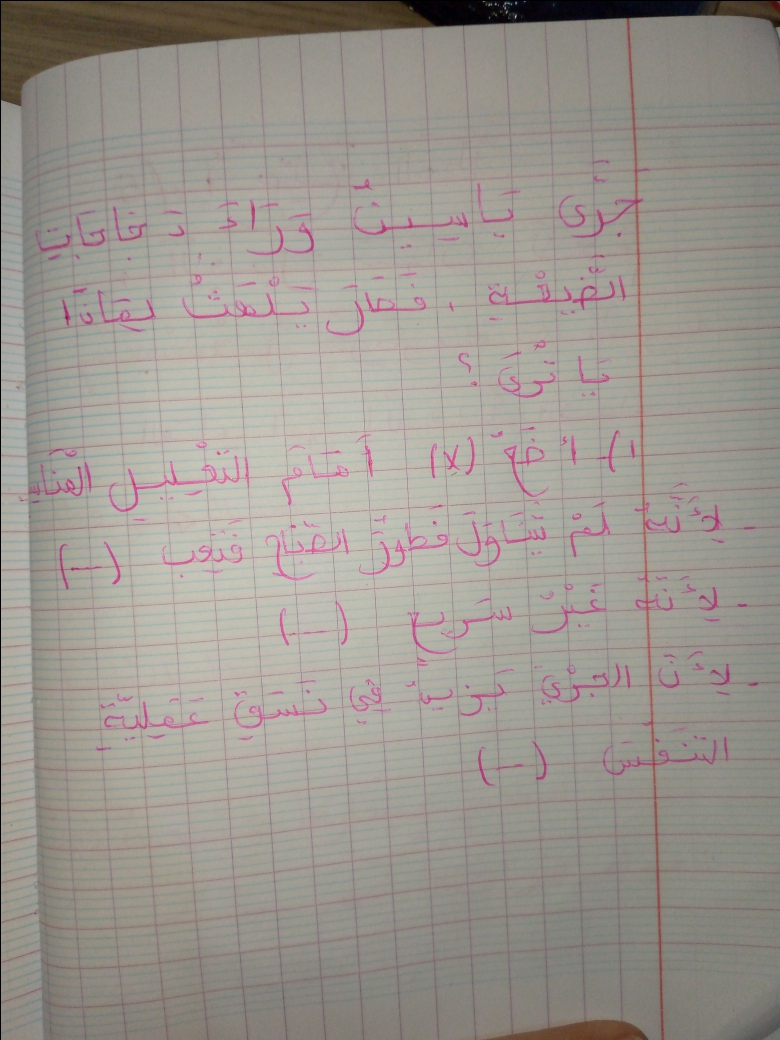 جَرَى يَاسِينُ وَرَاءَ دَجَاجَاتِ
الضَّيْعَةِ ، فَصَارَ يَلْهَثُ لِمَاذَا
يَا تُرَى ؟
1) أَضَعُ (x) أَمَامَ التَّعْلِيلِ المُنَاسِ
- لِأَنَّهُ لَمْ يَتَنَاوَلْ فَطُورَ الصَّبَاحِ فَتَعِبَ (—)
- لِأَنَّهُ غَيْرُ سَرِيعٍ (—)
- لِأَنَّ الجَرْيَ يَزِيدُ فِي نَسَقِ عَمَلِيَّةِ
التَّنَفُّسِ (—)